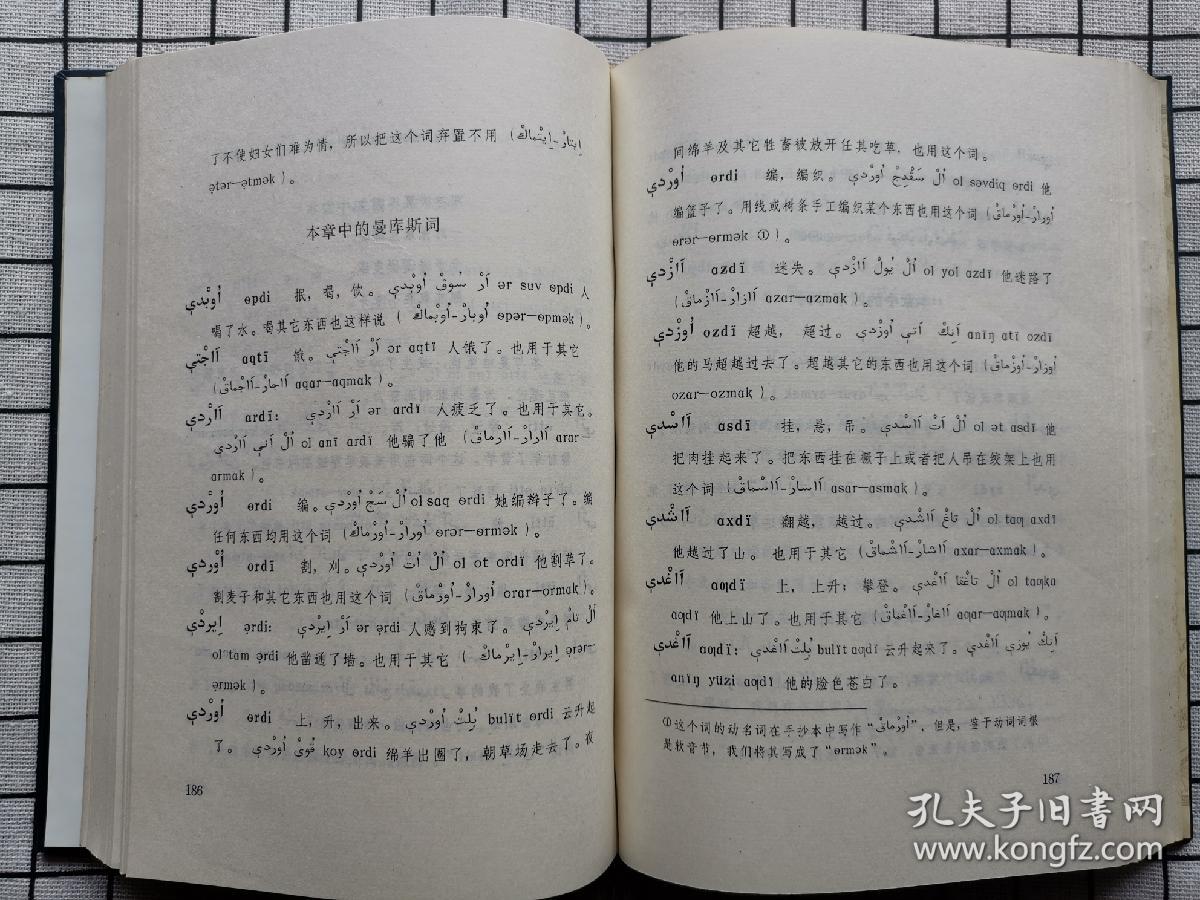 了不使妇女们难为情，所以把这个词弃置不用（اِيتارْ-اِيتْماكْ
ətər—ətmək）。
本章中的曼库斯词
اُوبْدىِ ɵpdi 抿，喝，饮。اَرْ سوڤْ اُوبْدىِ ər suv ɵpdi 人
喝了水。喝其它东西也这样说（اُوبارْ-اُوبْماكْ ɵpər—ɵpmək）。
aqtï 饿。ər aqtï 人饿了。也用于其它
（aqar—aqmak）。
اَارْدىِ ardï: اَرْ اَارْدىِ ər ardï 人疲乏了。也用于其它。
اُلْ اَنىِ اَارْدىِ ol anï ardï 他骗了他（اَارارْ-اَارْماقْ arar—
armak）。
اُورْدىِ ɵrdi 编。اُلْ سَجْ اُورْدىِ ol saq ɵrdi 她编辫子了。编
任何东西均用这个词（اُورارْ-اُورْماكْ ɵrər—ɵrmək）。
اُورْدىِ ordï 割，刈。اُلْ اُتْ اُورْدىِ ol ot ordï 他割草了。
割麦子和其它东西也用这个词（اُورارْ-اُورْماقْ orar—ormak）。
اِيرْدىِ ərdi: اَرْ اِيرْدىِ ər ərdi 人感到拘束了。اُلْ تامْ اِيرْدىِ
ol tam ərdi 他凿通了墙。也用于其它（اِيرارْ-اِيرْماكْ ərər—
ərmək）。
اُورْدىِ ɵrdi 上，升，出来。بُلِتْ اُورْدىِ bulït ɵrdi 云升起
了。قُوىْ اُورْدىِ koy ɵrdi 绵羊出圈了，朝草场走去了。夜
186
间绵羊及其它牲畜被放开任其吃草，也用这个词。
اُورْدىِ ɵrdi 编，编织。اُلْ سَڤْدِجْ اُورْدىِ ol səvdiq ɵrdi 他
编篮子了。用线或树条手工编织某个东西也用这个词（اُورارْ-اُورْماقْ
ɵrər—ɵrmək ①）。
اَازْدىِ azdï 迷失。اُلْ يُولْ اَازْدىِ ol yol azdï 他迷路了
（اَازارْ-اَازْماقْ azar—azmak）。
اُوزْدىِ ozdï 超越，超过。اَنِكْ اَتىِ اُوزْدىِ anïŋ atï ozdï
他的马超越过去了。超越其它的东西也用这个词（اُوزارْ-اُوزْماقْ
ozar—ozmak）。
اَاسْدىِ asdï 挂，悬，吊。اُلْ اَتْ اَاسْدىِ ol ət asdï 他
把肉挂起来了。把东西挂在橛子上或者把人吊在绞架上也用
这个词（اَاسارْ-اَاسْماقْ asar—asmak）。
اَاشْدىِ axdï 翻越，越过。اُلْ تاغْ اَاشْدىِ ol taƣ axdï
他越过了山。也用于其它（اَاشارْ-اَاشْماقْ axar—axmak）。
اَاغْدىِ aƣdï 上，上升；攀登。اُلْ تاغْقا اَاغْدىِ ol taƣka
aƣdï 他上山了。也用于其它（اَاغارْ-اَاغْماقْ aƣar—aƣmak）。
اَاغْدىِ aƣdï: بُلِتْ اَاغْدىِ bulït aƣdï 云升起来了。اَنِكْ يُوزىِ اَاغْدىِ
anïŋ yüzi aƣdï 他的脸色苍白了。
①这个词的动名词在手沙本中写作“اُورْماقْ”，但是，鉴于动词词根
是软音节，我们将其写成了“ɵrmək”。
187
孔夫子旧书网
www.kongfz.com